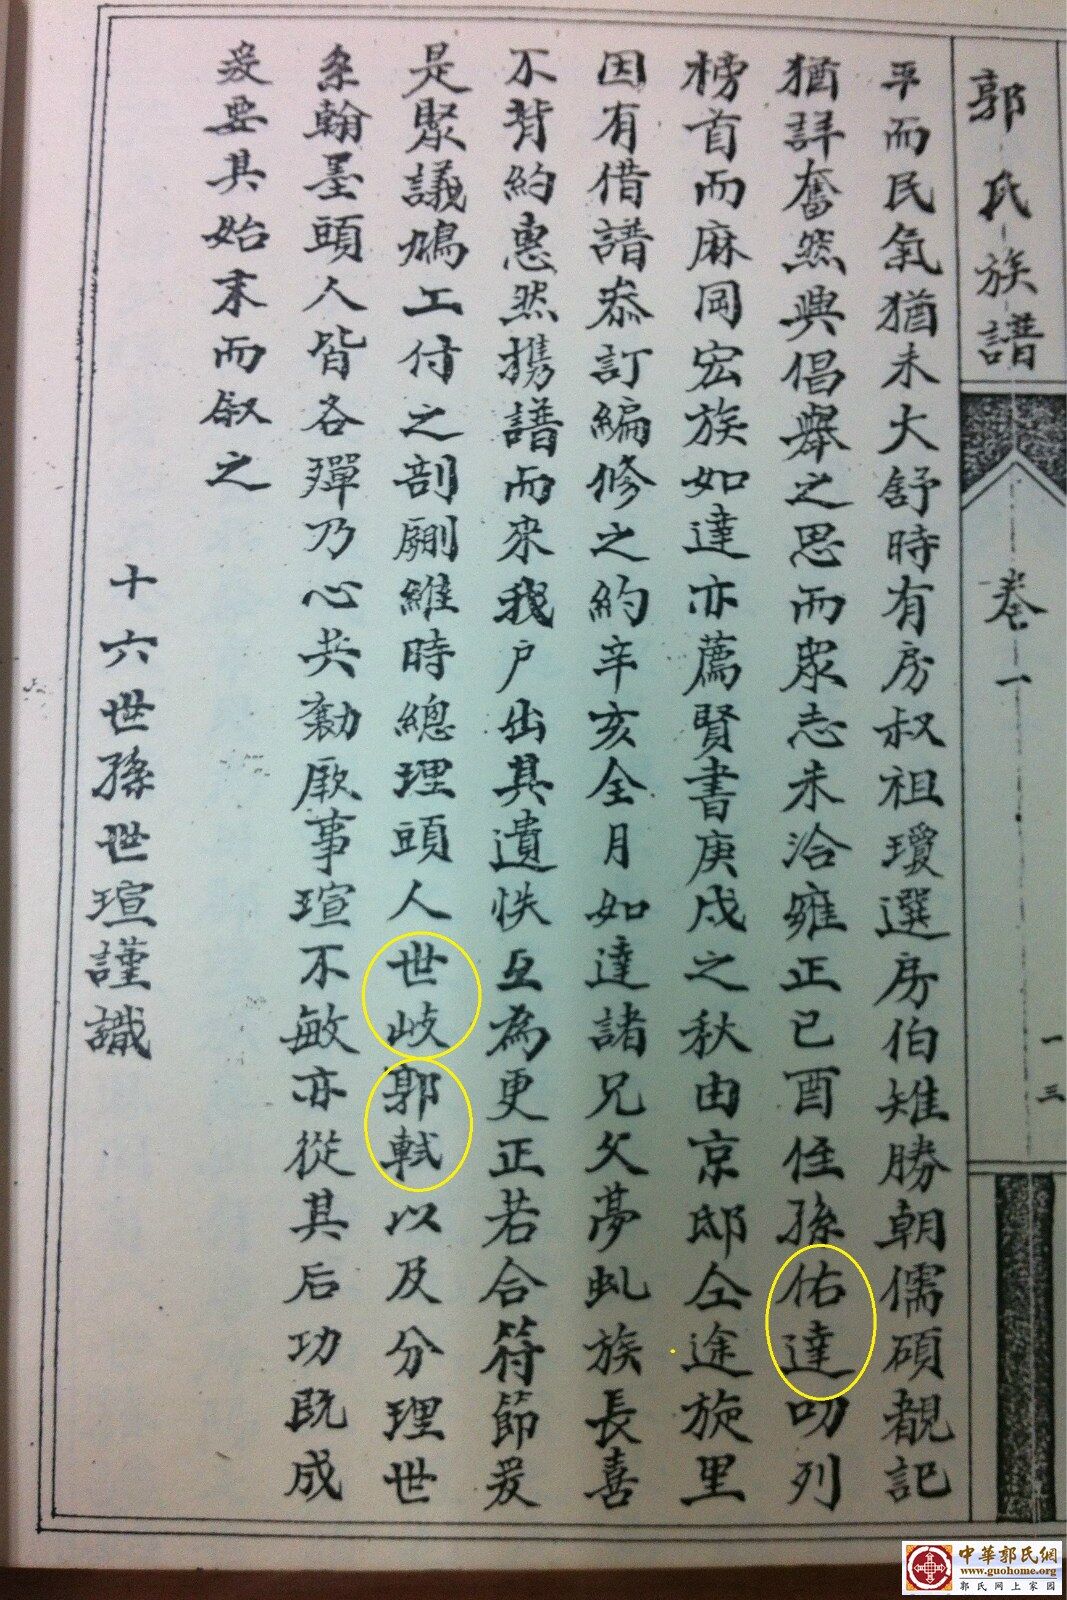 郭氏族譜 卷一 一三
平而民氣猶未大舒時有房叔祖瓊選房伯雉勝朝儒碩覩記
猶詳奮然興倡舉之思而眾志未洽雍正己酉侄孫佑達叨列
榜首而麻岡宏族如達亦薦賢書庚戌之秋由京邸仝途旋里
因有借譜叅訂編修之約辛亥全月如達諸兄父夢虬族長喜
不背約惠然携譜而來我户出其遺帙互為更正若合符節爰
是聚議鳩工付之剖劂維時總理頭人世岐郭軾以及分理世
系翰墨頭人皆各殫乃心共勷厥事瑄不敏亦從其后功既成
爰要其始末而叙之
十六世孫世瑄謹識
中華郭氏網
www.guohome.org
郭氏网上家园